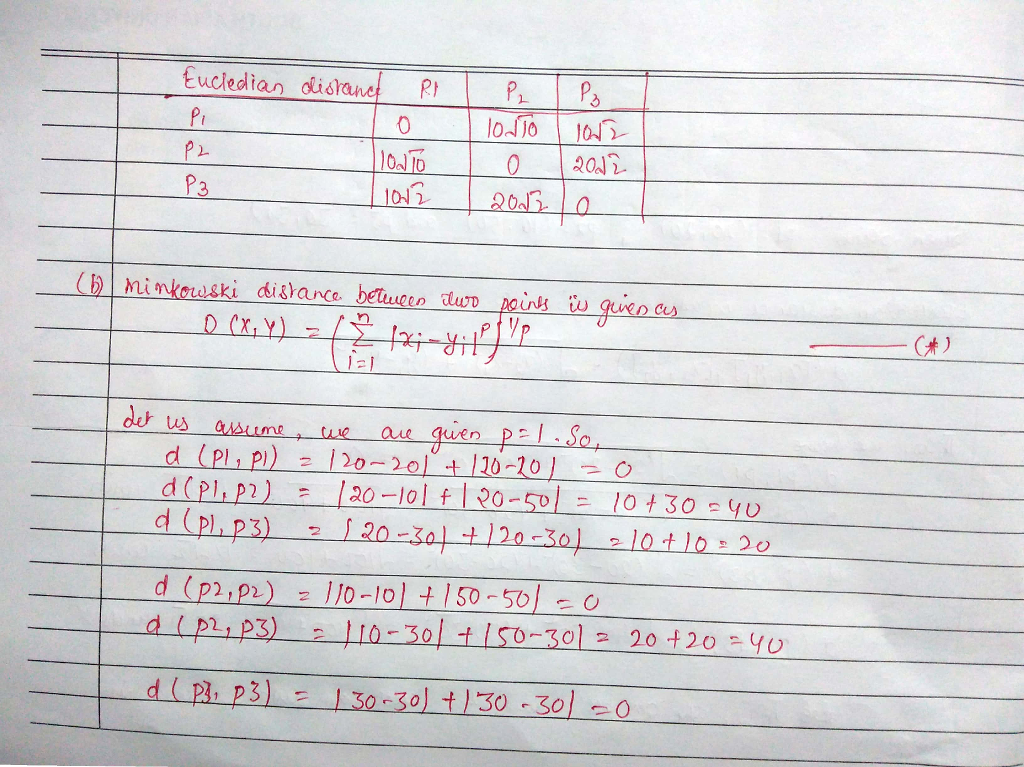 Eucledian distance P1 P2 P3
P1 0 10√10 10√2
P2 10√10 0 20√2
P3 10√2 20√2 0
(b) Minkowski distance between two points is given as
D(X,Y) = (∑ⁿᵢ₌₁ |xi-yi|^p)^1/p ——— (*)
Let us assume, we are given p=1. So,
d (P1, P1) = |20-20| + |20-20| = 0
d (P1, P2) = |20-10| + |20-50| = 10+30 = 40
d (P1, P3) = |20-30| + |20-30| = 10+10 = 20
d (P2, P2) = |10-10| + |50-50| = 0
d (P2, P3) = |10-30| + |50-30| = 20+20 = 40
d (P3, P3) = |30-30| + |30-30| = 0